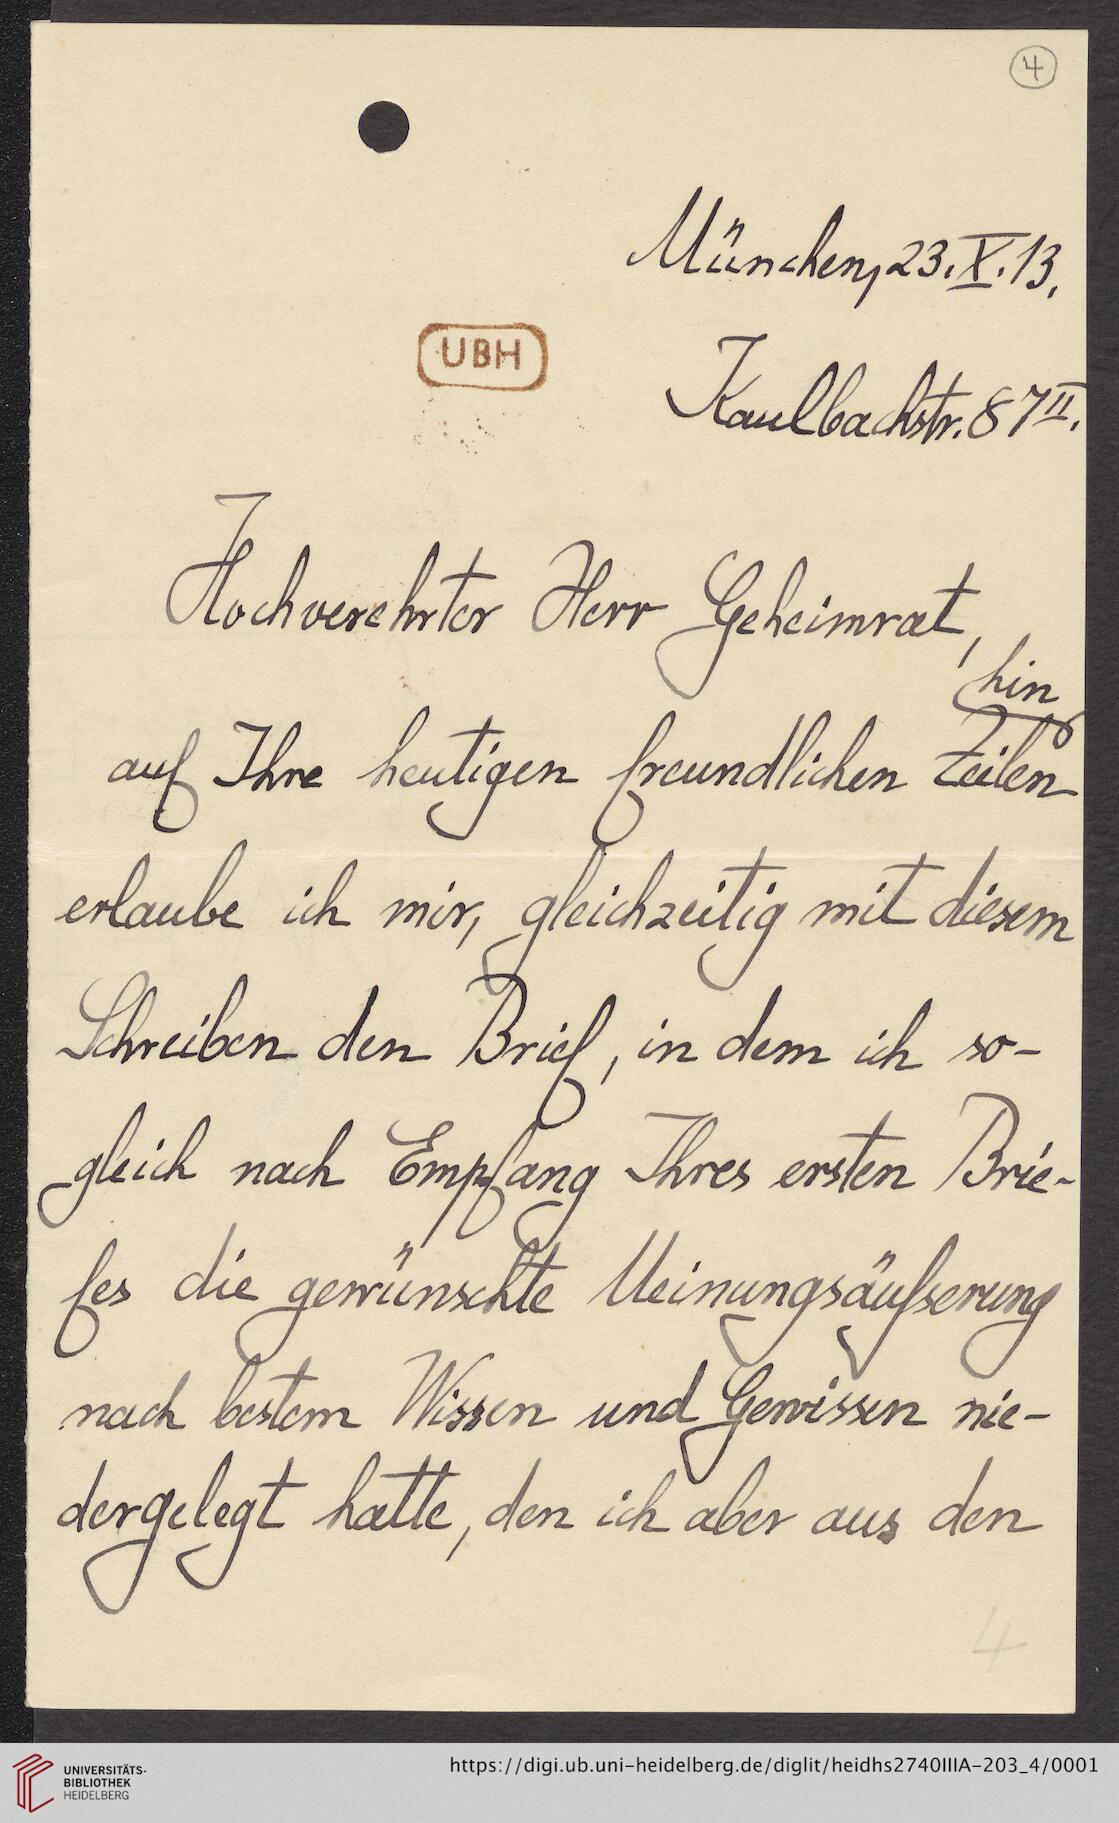 4
München, 23. X. 13.
UBH
Kaulbachstr. 87 II.
Hochverehrter Herr Geheimrat,
hin
auf Ihre heutigen freundlichen Zeilen
erlaube ich mir, gleichzeitig mit diesem
Schreiben den Brief, in dem ich so-
gleich nach Empfang Ihres ersten Brie-
fes die gewünschte Meinungsäufserung
nach bestem Wissen und Gewissen nie-
dergelegt hatte, den ich aber aus den
4
UNIVERSITÄTS-
BIBLIOTHEK
HEIDELBERG
https://digi.ub.uni-heidelberg.de/diglit/heidhs2740IIIA-203_4/0001